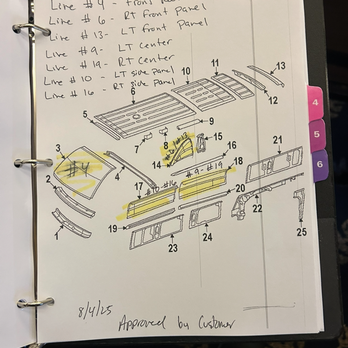 Line #4 - Front
Line #6 - RT front Panel
Line #13 - LT front Panel
Line #9 - LT center
Line #19 - RT center
Line #10 - LT side panel
Line #16 - RT side Panel
13
11
10
12
6
9
5
8
7
15
21
3
14
16
#4
4
#9 - #19
18
2
17
#16
20
22
1
19
23
24
25
4
5
6
8/4/25
Approved by Customer